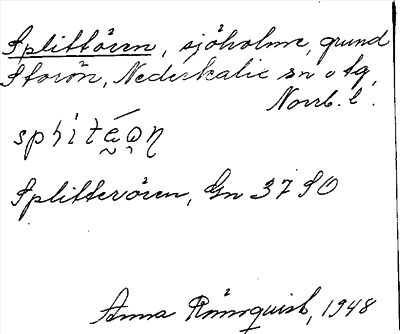 Splittören, sjöholme, grund
Storön, Nederkalix sn o tg,
Norrb. l.
Splitterören, Gn 37 SO
Anna Rönnquist, 1948